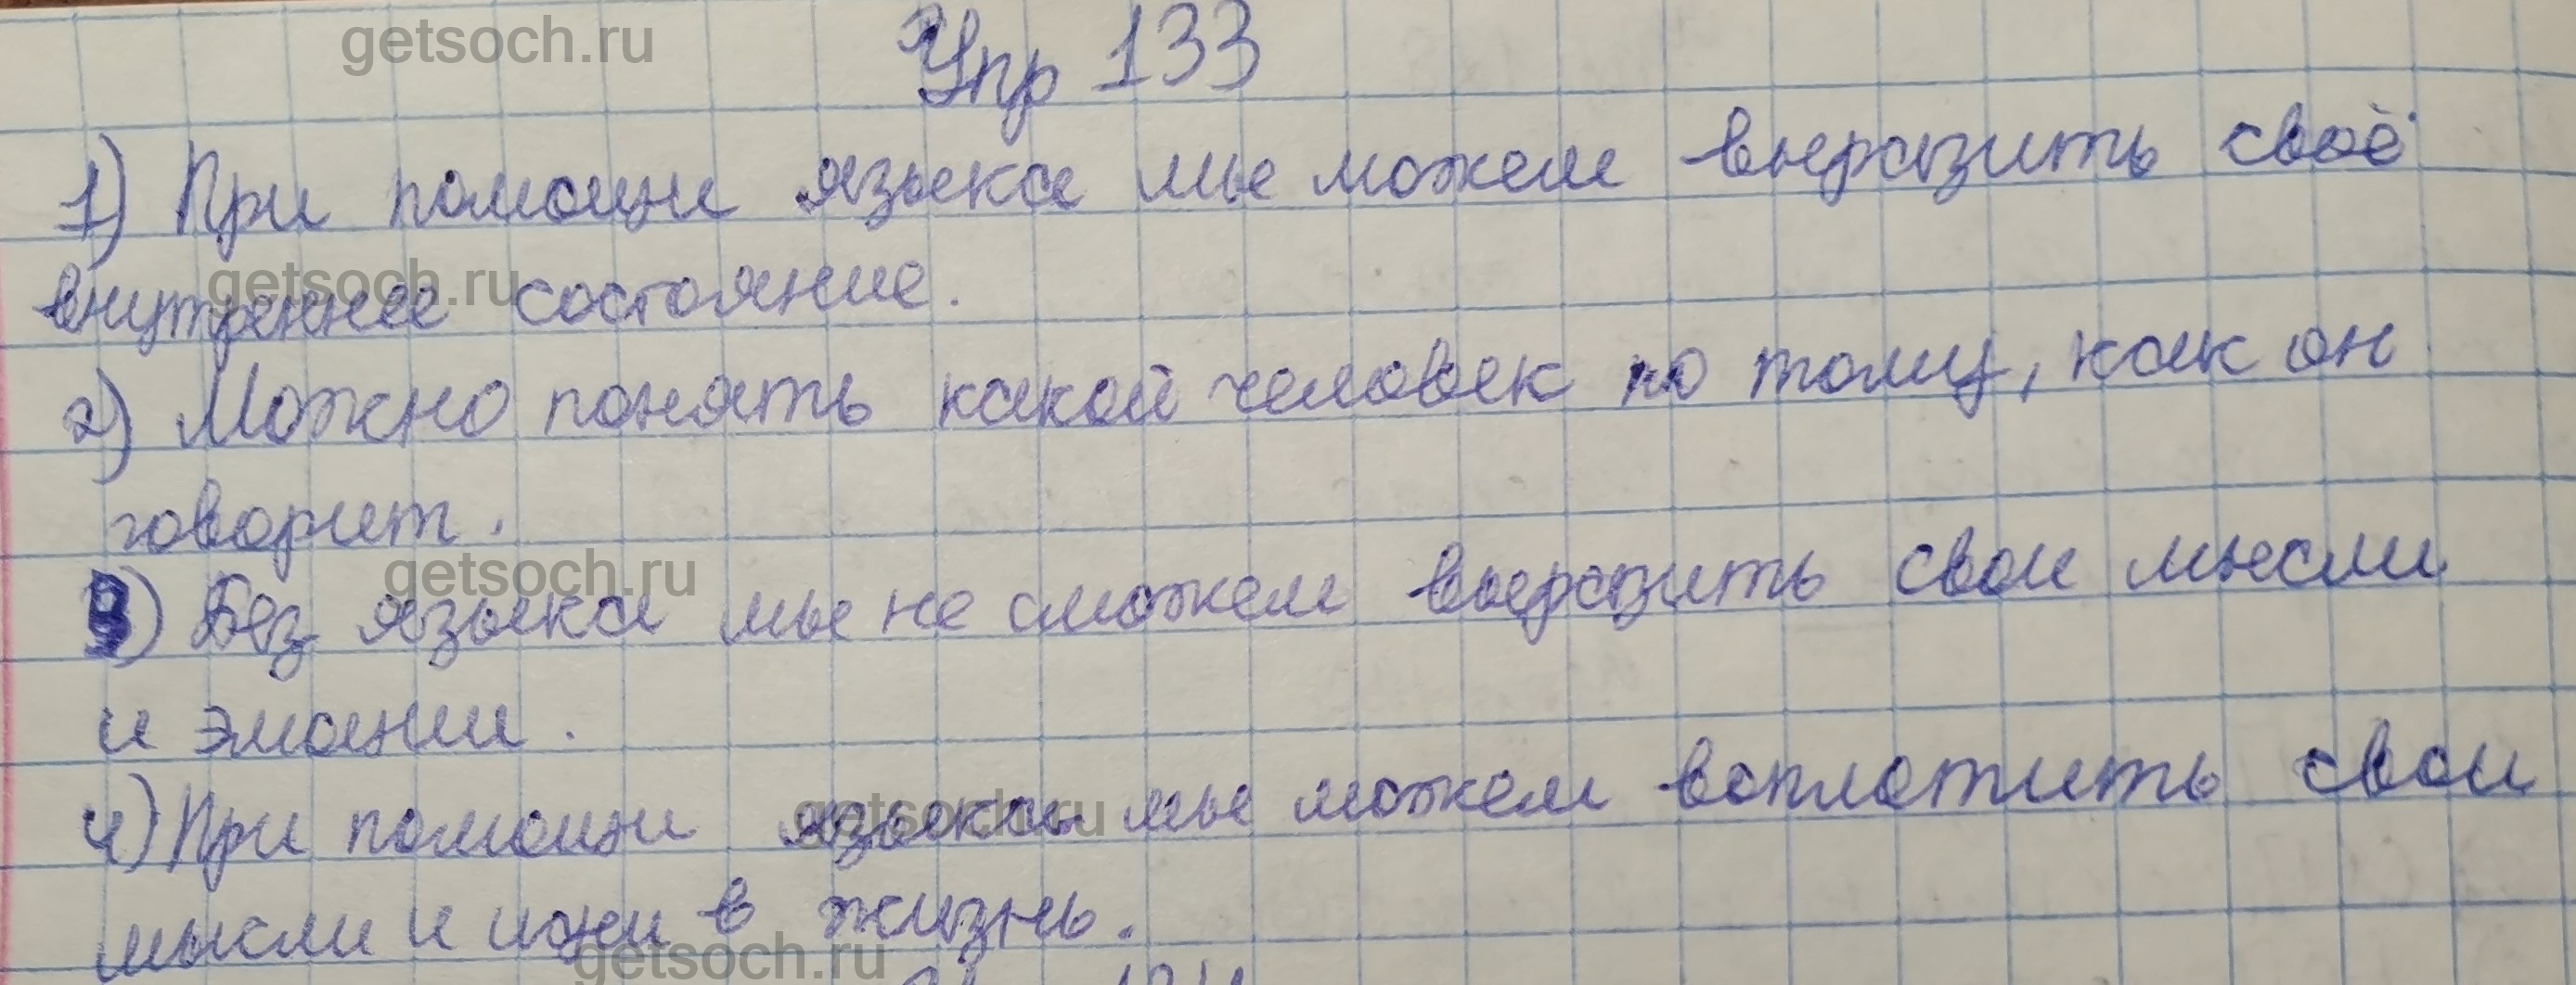 getsoch.ru
Упр 133
1) При помощи языка мы можем выразить своё
внутреннее состояние.
getsoch.ru
2) Можно понять какой человек по тому, как он
говорит.
getsoch.ru
3) Без языка мы не сможем выразить свои мысли
и эмоции.
4) При помощи языка мы можем воплотить свои
getsoch.ru
мысли и идеи в жизнь.
getsoch.ru